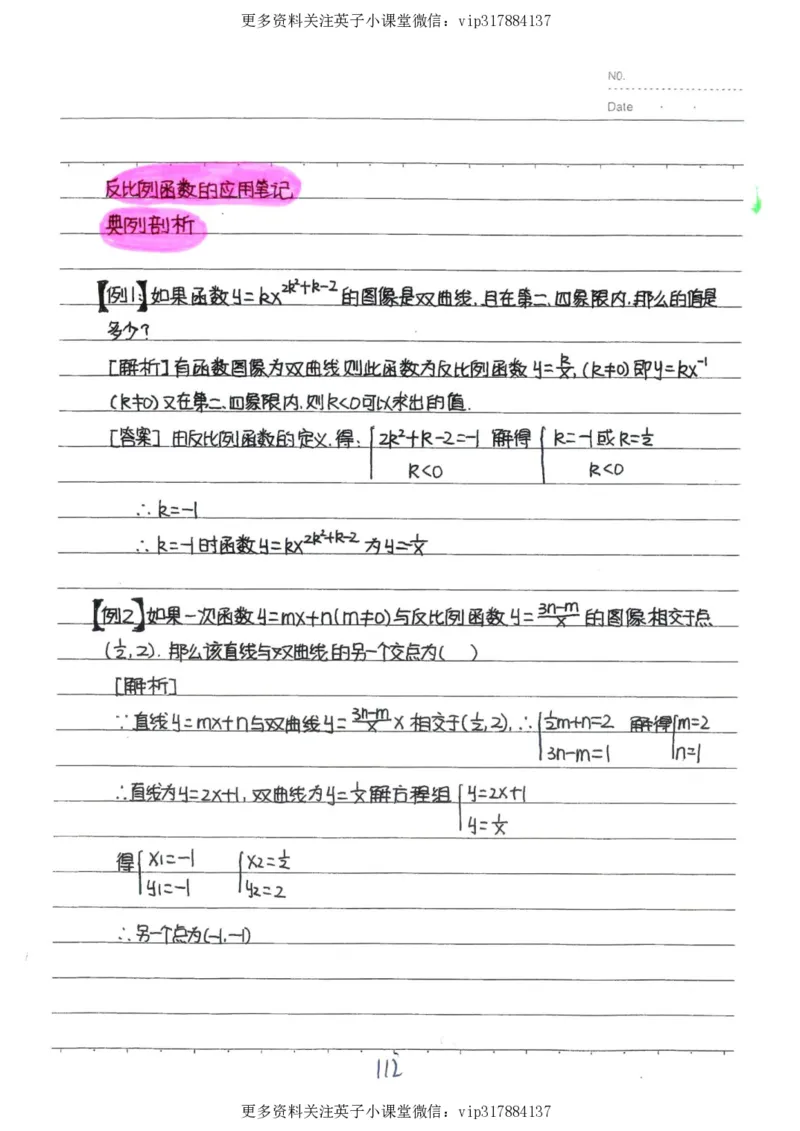 更多资料关注英子小课堂微信：vip317884137
NO.
Date
反比例函数的应用笔记
典例剖析
【例1:】如果函数y=kx^(2k²+k-2)的图像是双曲线,且在第二、四象限内,那么的值是
多少?
[解析]有函数图像为双曲线则此函数为反比例函数y=k/x,(k≠0)即y=kx⁻¹
(k≠0)又在第二、四象限内,则k<0可以求出的值.
[答案] 由反比例函数的定义,得:{2k²+k-2=-1 解得{k=-1或k=1/2
k<0 k<0
∴k=-1
∴k=-1时函数y=kx^(2k²+k-2)为y=-1/x
【例2】如果一次函数y=mx+n(m≠0)与反比例函数y=(3n-m)/x的图像相交于点
(1/2,2).那么该直线与双曲线的另一个交点为( )
[解析]
∵直线y=mx+n与双曲线y=(3n-m)/x x相交于(1/2,2),∴{1/2m+n=2 解得{m=2
3n-m=1 n=1
∴直线为y=2x+1,双曲线为y=1/x解方程组{y=2x+1
y=1/x
得{x1=-1 {x2=1/2
y1=-1 y2=2
∴另一个点为(-1,-1)
112
更多资料关注英子小课堂微信：vip317884137